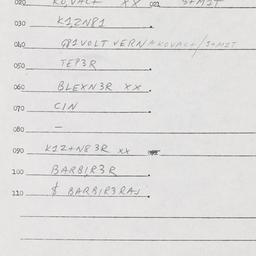 020 KO,VACT XX 021 S+MIT
030 K12N81
040 G81VOLT VERN A KOVACT/S+MIT
050 TEP3R
060 BLEXN3R XX.
070 CIN
080 —
090 K12+N83R XX
100 BARB1R3R
110 $ BARB1R3RAS